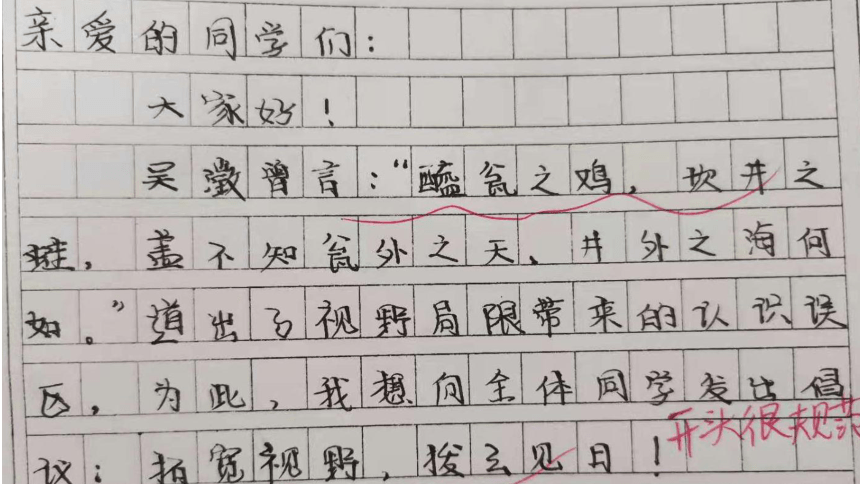 亲爱的同学们：
大家好！
吴澂曾言：“醯瓮之鸡，坎井之
蛙，盖不知瓮外之天、井外之海何
如。”道出了视野局限带来的认识误
区，为此，我想向全体同学发出倡
议：拓宽视野，拨云见日！
开头很规范